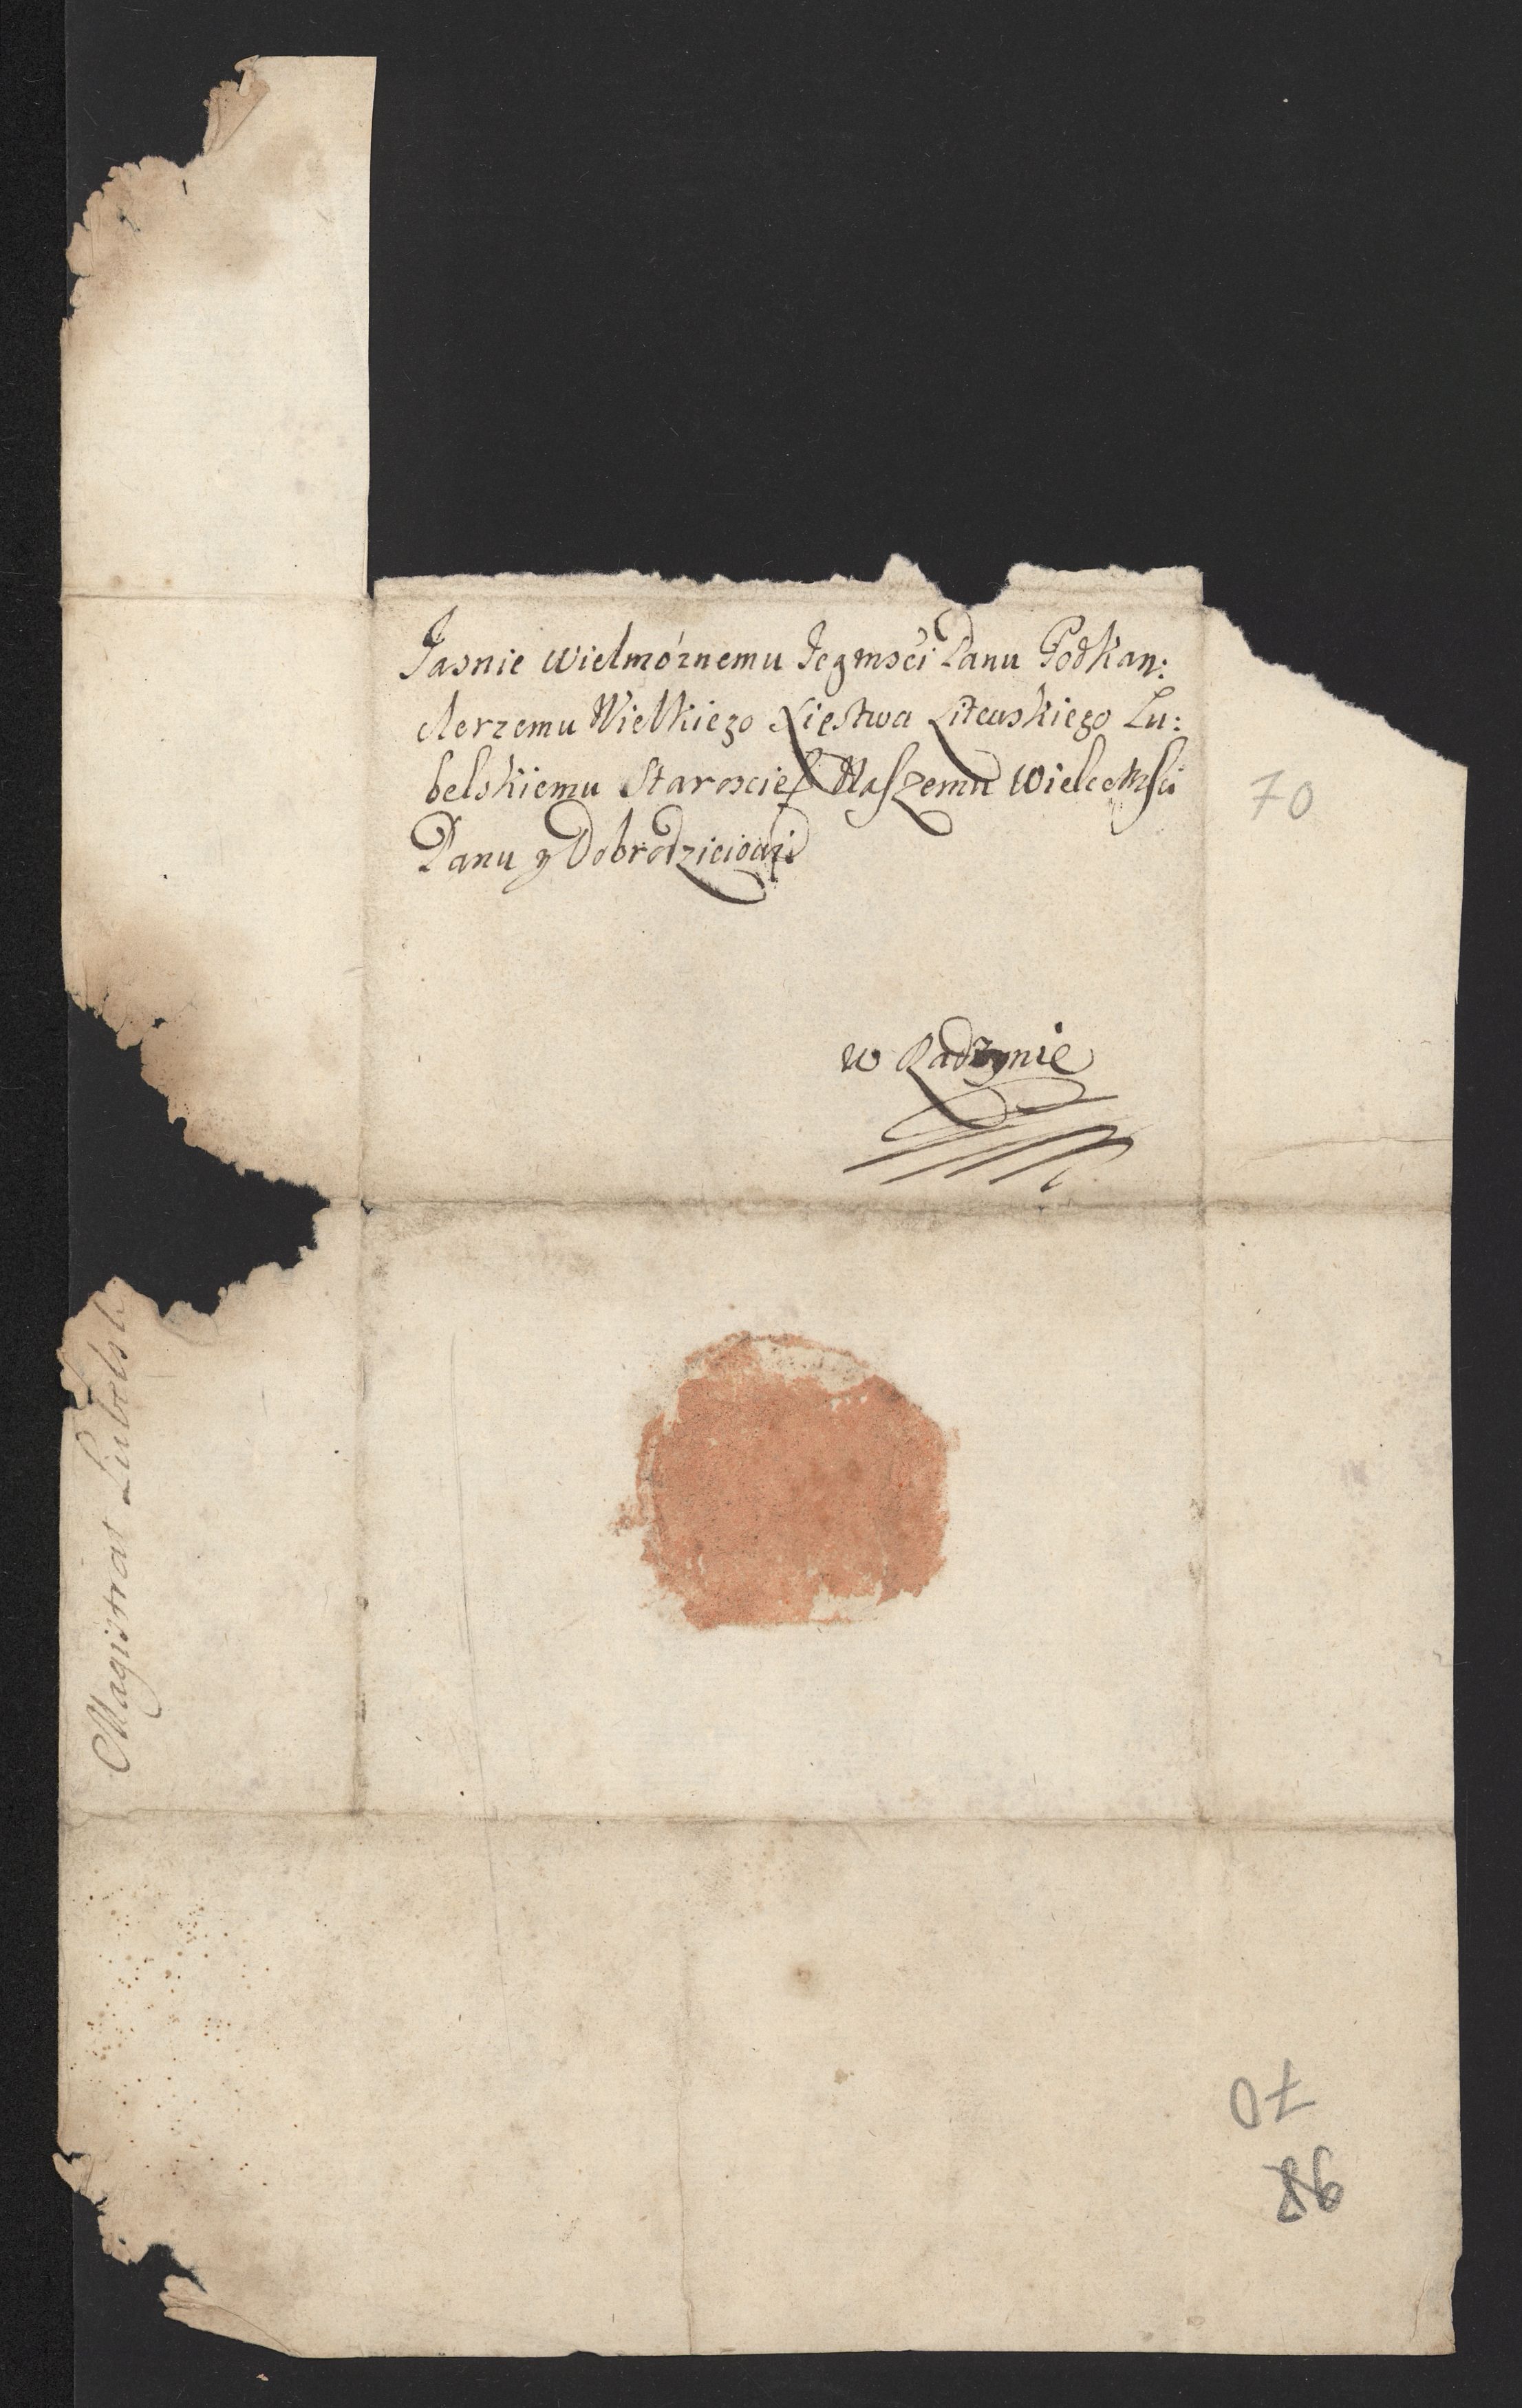 Jasnie Wielmożnemu Jegmości Panu Podkan:
clerzemu Wielkiego Xięstwa Litewskiego Lu:
belskiemu Staroscie Naszemu Wielce Mści
Panu y Dobrodzieiowi
w Radzynie
70
Magistrat Lubelsk
70
98